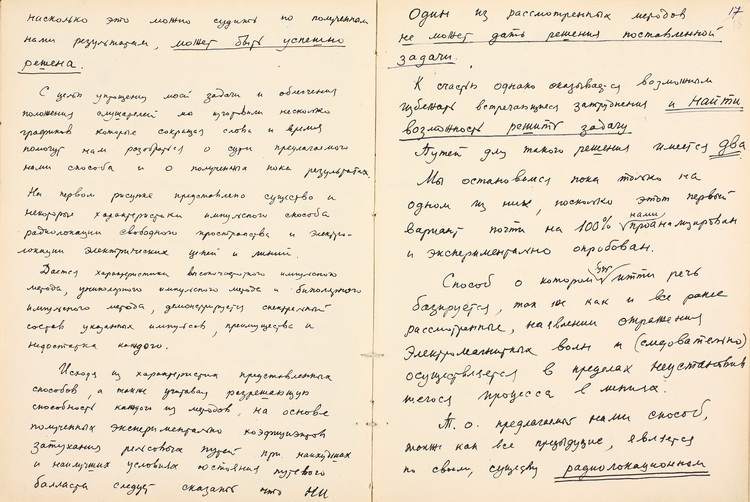 насколько это можно судить по полученным
нами результатам, может быть успешно
решена.
С целью упрощения моей задачи и облегчения
положения слушателей мы изготовили несколько
графиков которые сокращая слова и время
помогут нам разобраться о сути предлагаемого
нами способа и о полученных пока результатах
На первом рисунке представлено существо и
некоторые характеристики импульсного способа
радиолокации свободного пространства и электро-
локации электрических цепей и линий.
Дается характеристика высокочастотного импульсного
метода, униполярного импульсного метода и биполярного
импульсного метода, демонстрируется спектральный
состав указанных импульсов, преимущества и
недостатки каждого.
Исходя из характеристик представленных
способов, а также учитывая разрешающую
способность каждого из методов, на основе
полученных экспериментально коэфициентов
затухания рельсовых путей при наихудших
и наилучших условиях состояния путевого
балласта следует сказать что ни
17
Один из рассмотренных методов
не может дать решения поставленной
задачи.
К счастью однако оказывается возможным
избежать встречающиеся затруднения и найти
возможность решить задачу
Путей для такого решения имеется два
Мы остановимся пока только на
одном из них, поскольку этот первый
вариант почти на 100% нами проанализирован
и экспериментально опробован.
Способ о котором будет идти речь
базируется, так же как и все ранее
рассмотренные, на явлении отражения
электромагнитных волн и (следовательно)
осуществляется в пределах неустановив
шегося процесса в линиях.
Т. о. предлагаемый нами способ,
также как все предыдущие, является
по своему существу радиолокационным